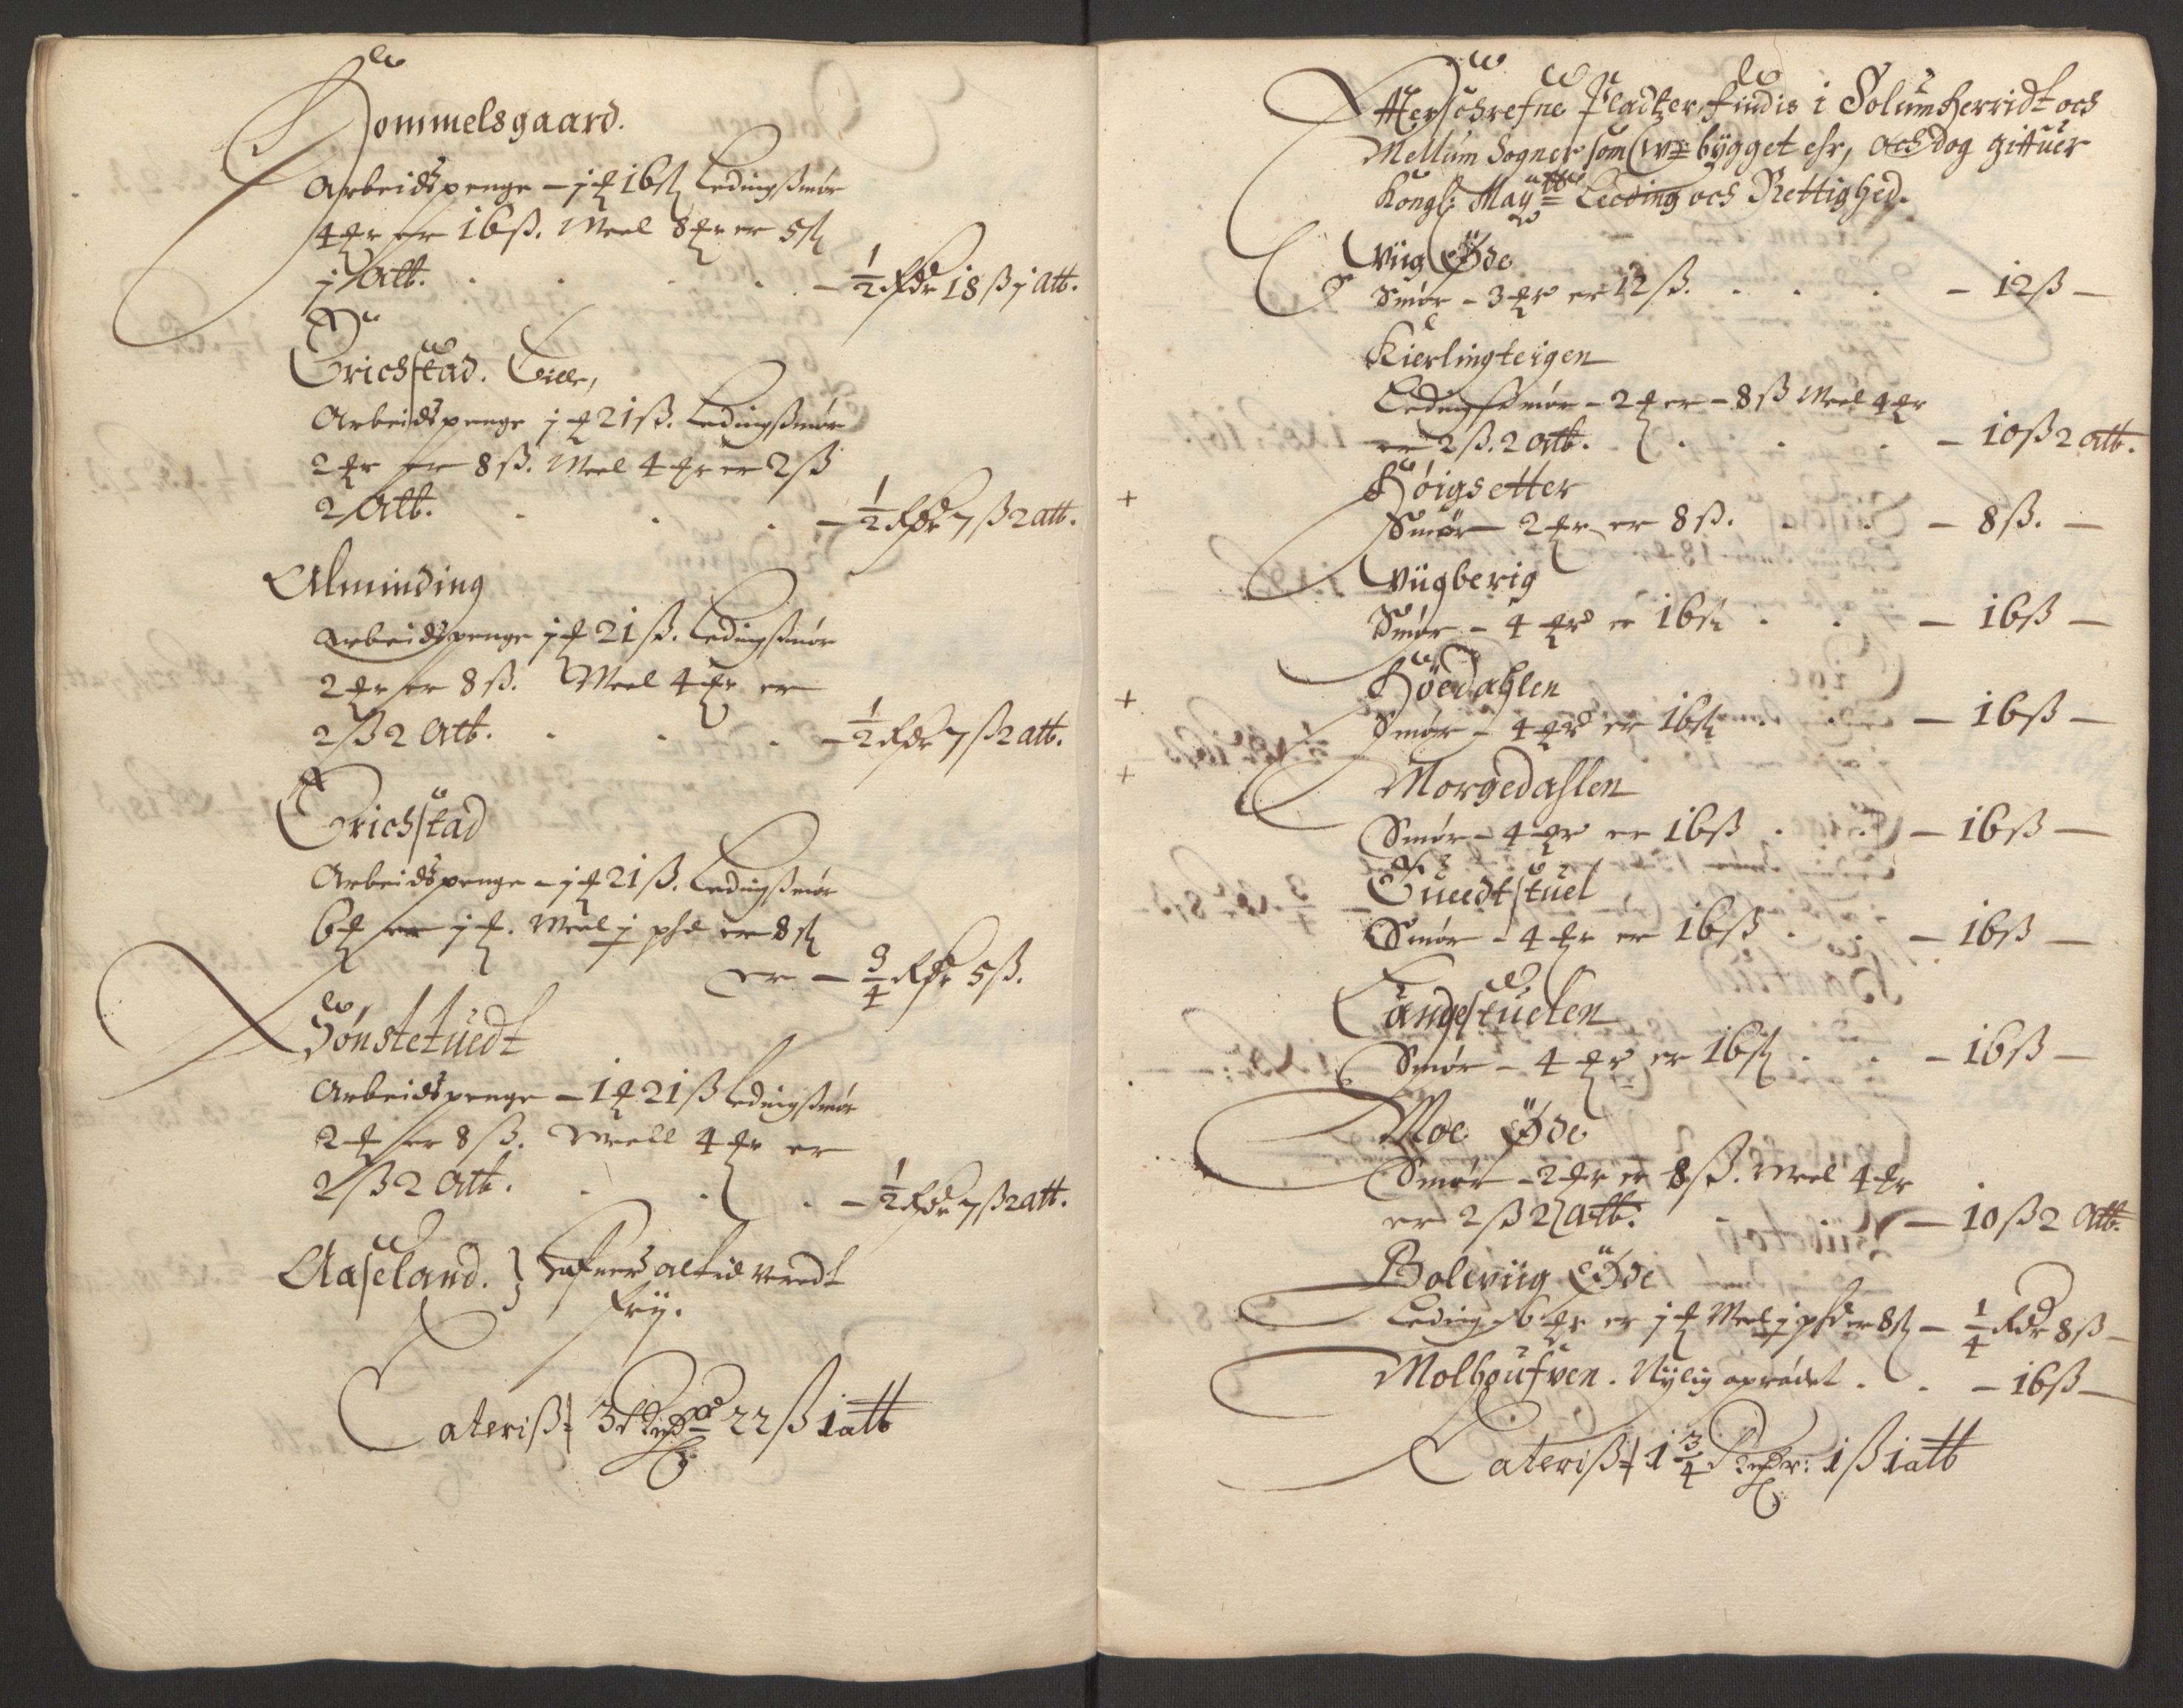 Hommelsgaard.
Arbeidspenge – j ₰ 16 ß Ledingsmør
4 ₰r er 16 ß. Meel 8 ₰r er 5 ß
j Alb. – ½ Rdr 18 ß j alb.
Erichstad. Lille,
Arbeidspenge j ₰ 21 ß. Ledingsmør
2 ₰r er 8 ß. Meel 4 ₰r er 2 ß
2 Alb. – ½ Rdr 7 ß 2 alb.
Alminding
Arbeidspenge j ₰ 21 ß. Ledingsmør
2 ₰r er 8 ß. Meel 4 ₰r er
2 ß 2 Alb. – ½ Rdr 7 ß 2 alb.
Erichstad
Arbeidspenge – j ₰ 21 ß. Ledingsmør
6 ₰ er j ₰. Meel j phd er 8 ß
er – ¾ Rdr 5 ß.
Hønstetuedt
Arbeidspenge – 1 ₰ 21 ß Ledingsmør
2 ₰ er 8 ß. Meell 4 ₰r er
2 ß 2 Alb. – ½ Rdr 7 ß 2 alb.
Aaseland. } altid veredt
frij.
Lateriß 3 Rixdr 22 ß 1 alb
Effterschrefne Pladtzer findis i Solumherridt och
Mellum Sogner som bygget ehr, och dog gifuer
Kongl: Maytts Leeding och Rettighed.
Viig Øde
Smør – 3 ₰r er 12 ß. – 12 ß –
Kierlingteigen
Ledingsmør – 2 ₰ er – 8 ß Meel 4 ₰r
er 2 ß. 2 alb. – 10 ß 2 alb.
+ Høigsetter
Smør – 2 ₰r er 8 ß. – 8 ß. –
Viigberig
Smør – 4 ₰r er 16 ß – 16 ß –
+ Høedahlen
Smør – 4 ₰r er 16 ß – 16 ß –
+ Morgedahlen
Smør – 4 ₰r er 16 ß – 16 ß –
Tueedtstuel
Smør – 4 ₰r er 16 ß – 16 ß –
Langestuelen
Smør – 4 ₰r er 16 ß – 16 ß –
Moe Øde
Smør – 2 ₰r er 8 ß. Meel 4 ₰r
er 2 ß 2 alb. – 10 ß 2 Alb.
Boleviig Øde
Leding 6 ₰r er j ₰ Meel j phd er 8 ß – ¼ Rdr 8 ß –
Molhoufven. Nylig oprødet – 16 ß –
Lateriß 1 ¾ Rixdr: 1 ß 1 alb